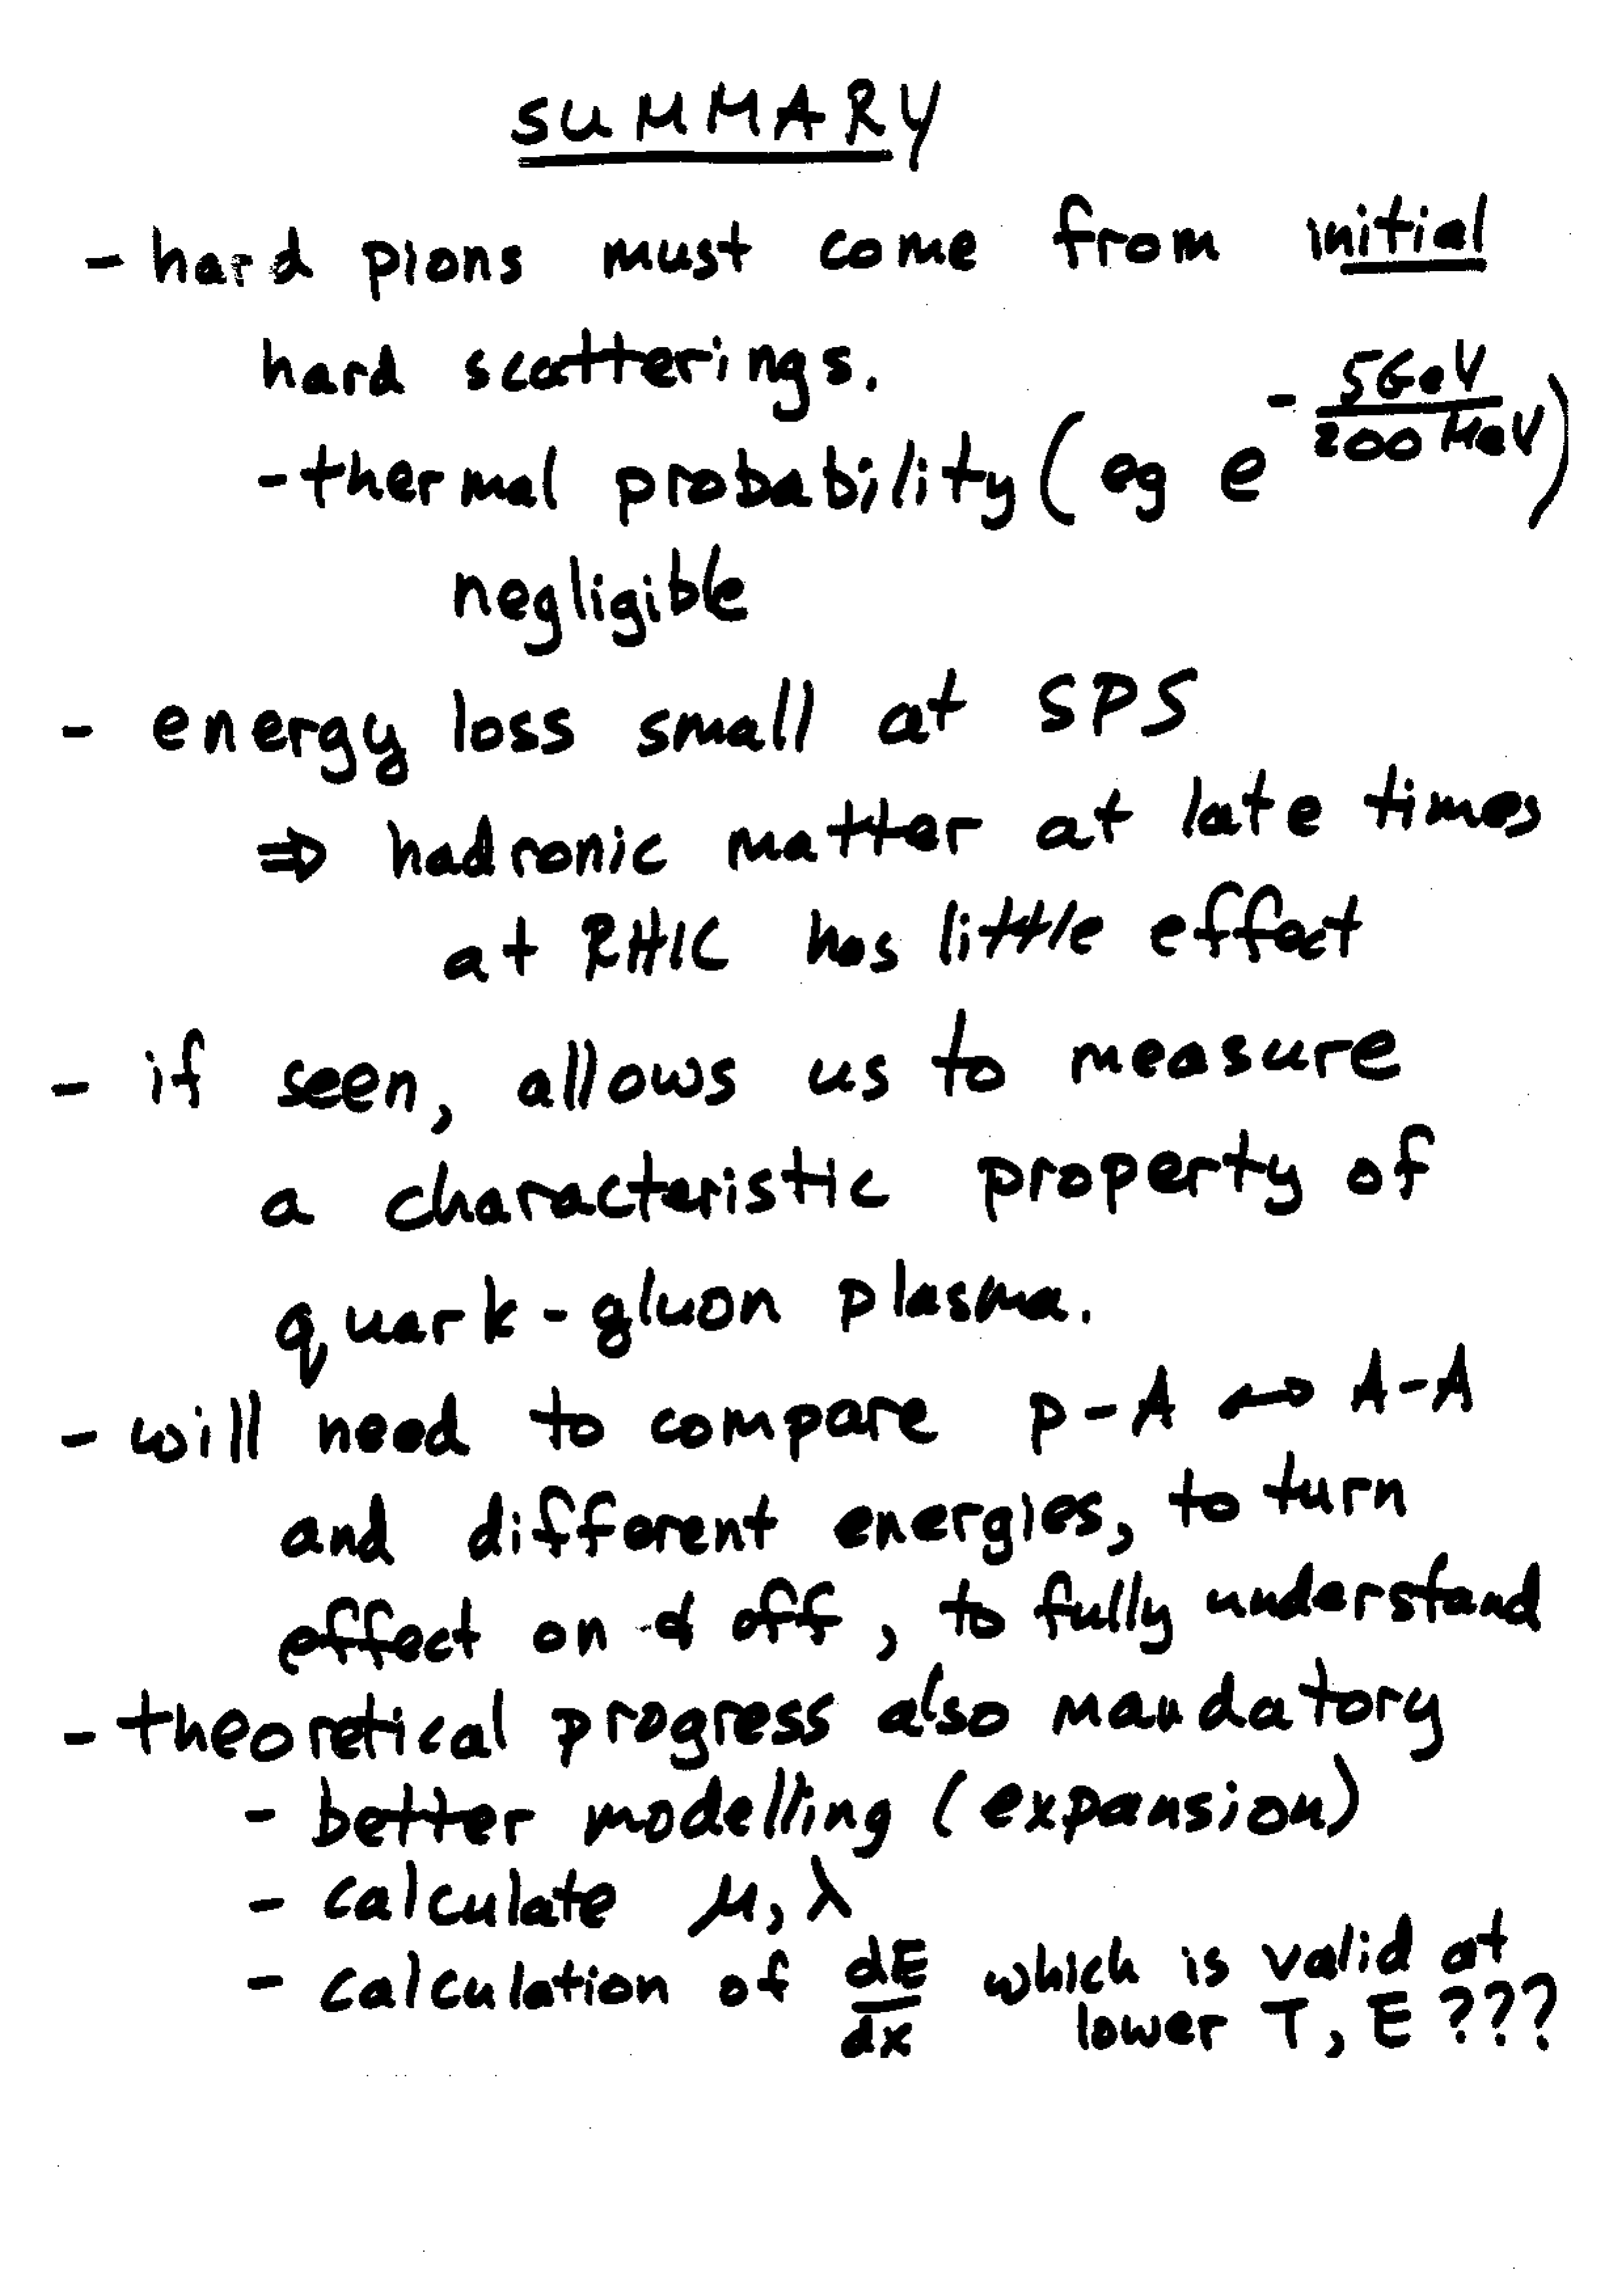 SUMMARY
- hard pions must come from initial
hard scatterings.
- thermal probability (eg e^{- 5GeV/200 MeV})
negligible
- energy loss small at SPS
⇒ hadronic matter at late times
at RHIC has little effect
- if seen, allows us to measure
a characteristic property of
quark-gluon plasma.
- will need to compare p-A ↔ A-A
and different energies, to turn
effect on & off, to fully understand
- theoretical progress also mandatory
- better modelling (expansion)
- calculate μ, λ
- calculation of dE/dx which is valid at
lower T, E ???